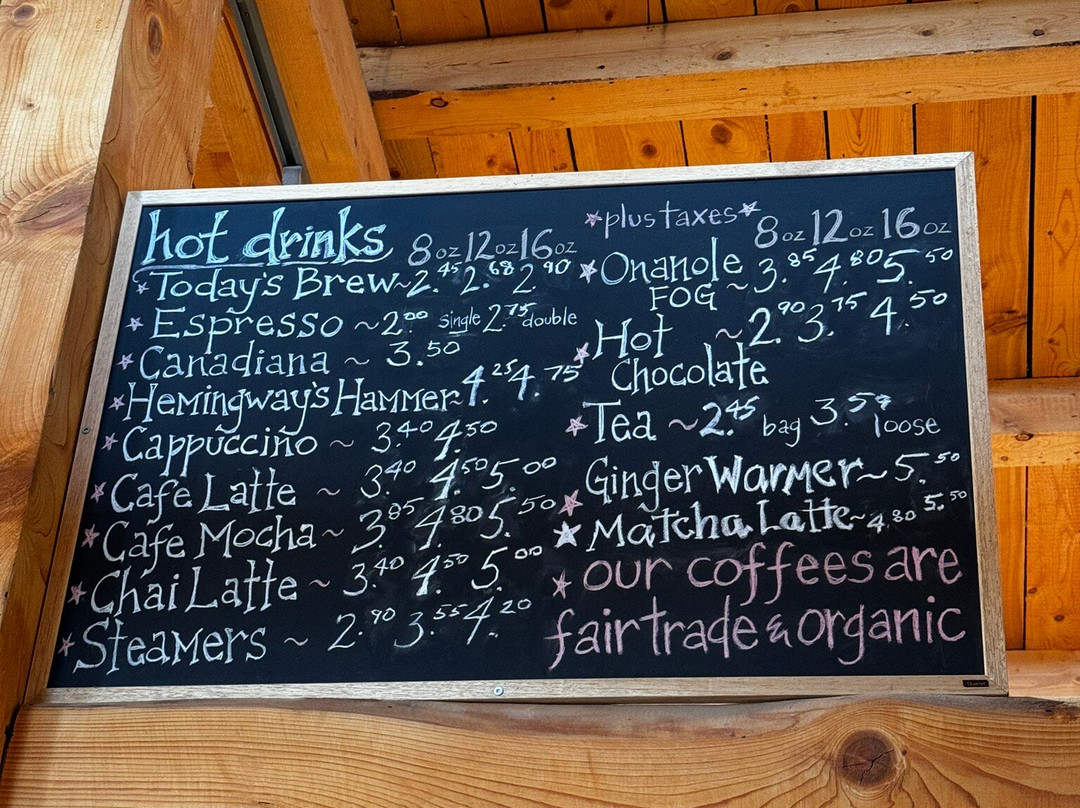 hot drinks 8oz 12oz 16oz
Today's Brew~2.45 2.68 2.90
Espresso ~2.00 single 2.75 double
Canadiana ~ 3.50
Hemingway's Hammer~4.25 4.75
Cappuccino ~ 3.40 4.50
Cafe Latte ~ 3.40 4.50 5.00
Cafe Mocha~ 3.85 4.80 5.50
Chai Latte ~ 3.40 4.50 5.00
Steamers ~ 2.90 3.55 4.20
*plus taxes*
8oz 12oz 16oz
Onanole ~3.85 4.80 5.50
FOG
Hot ~2.90 3.75 4.50
Chocolate
Tea ~2.45 bag 3.59 loose
Ginger Warmer~5.50
Matcha Latte~4.80 5.50
our coffees are
fair trade & organic